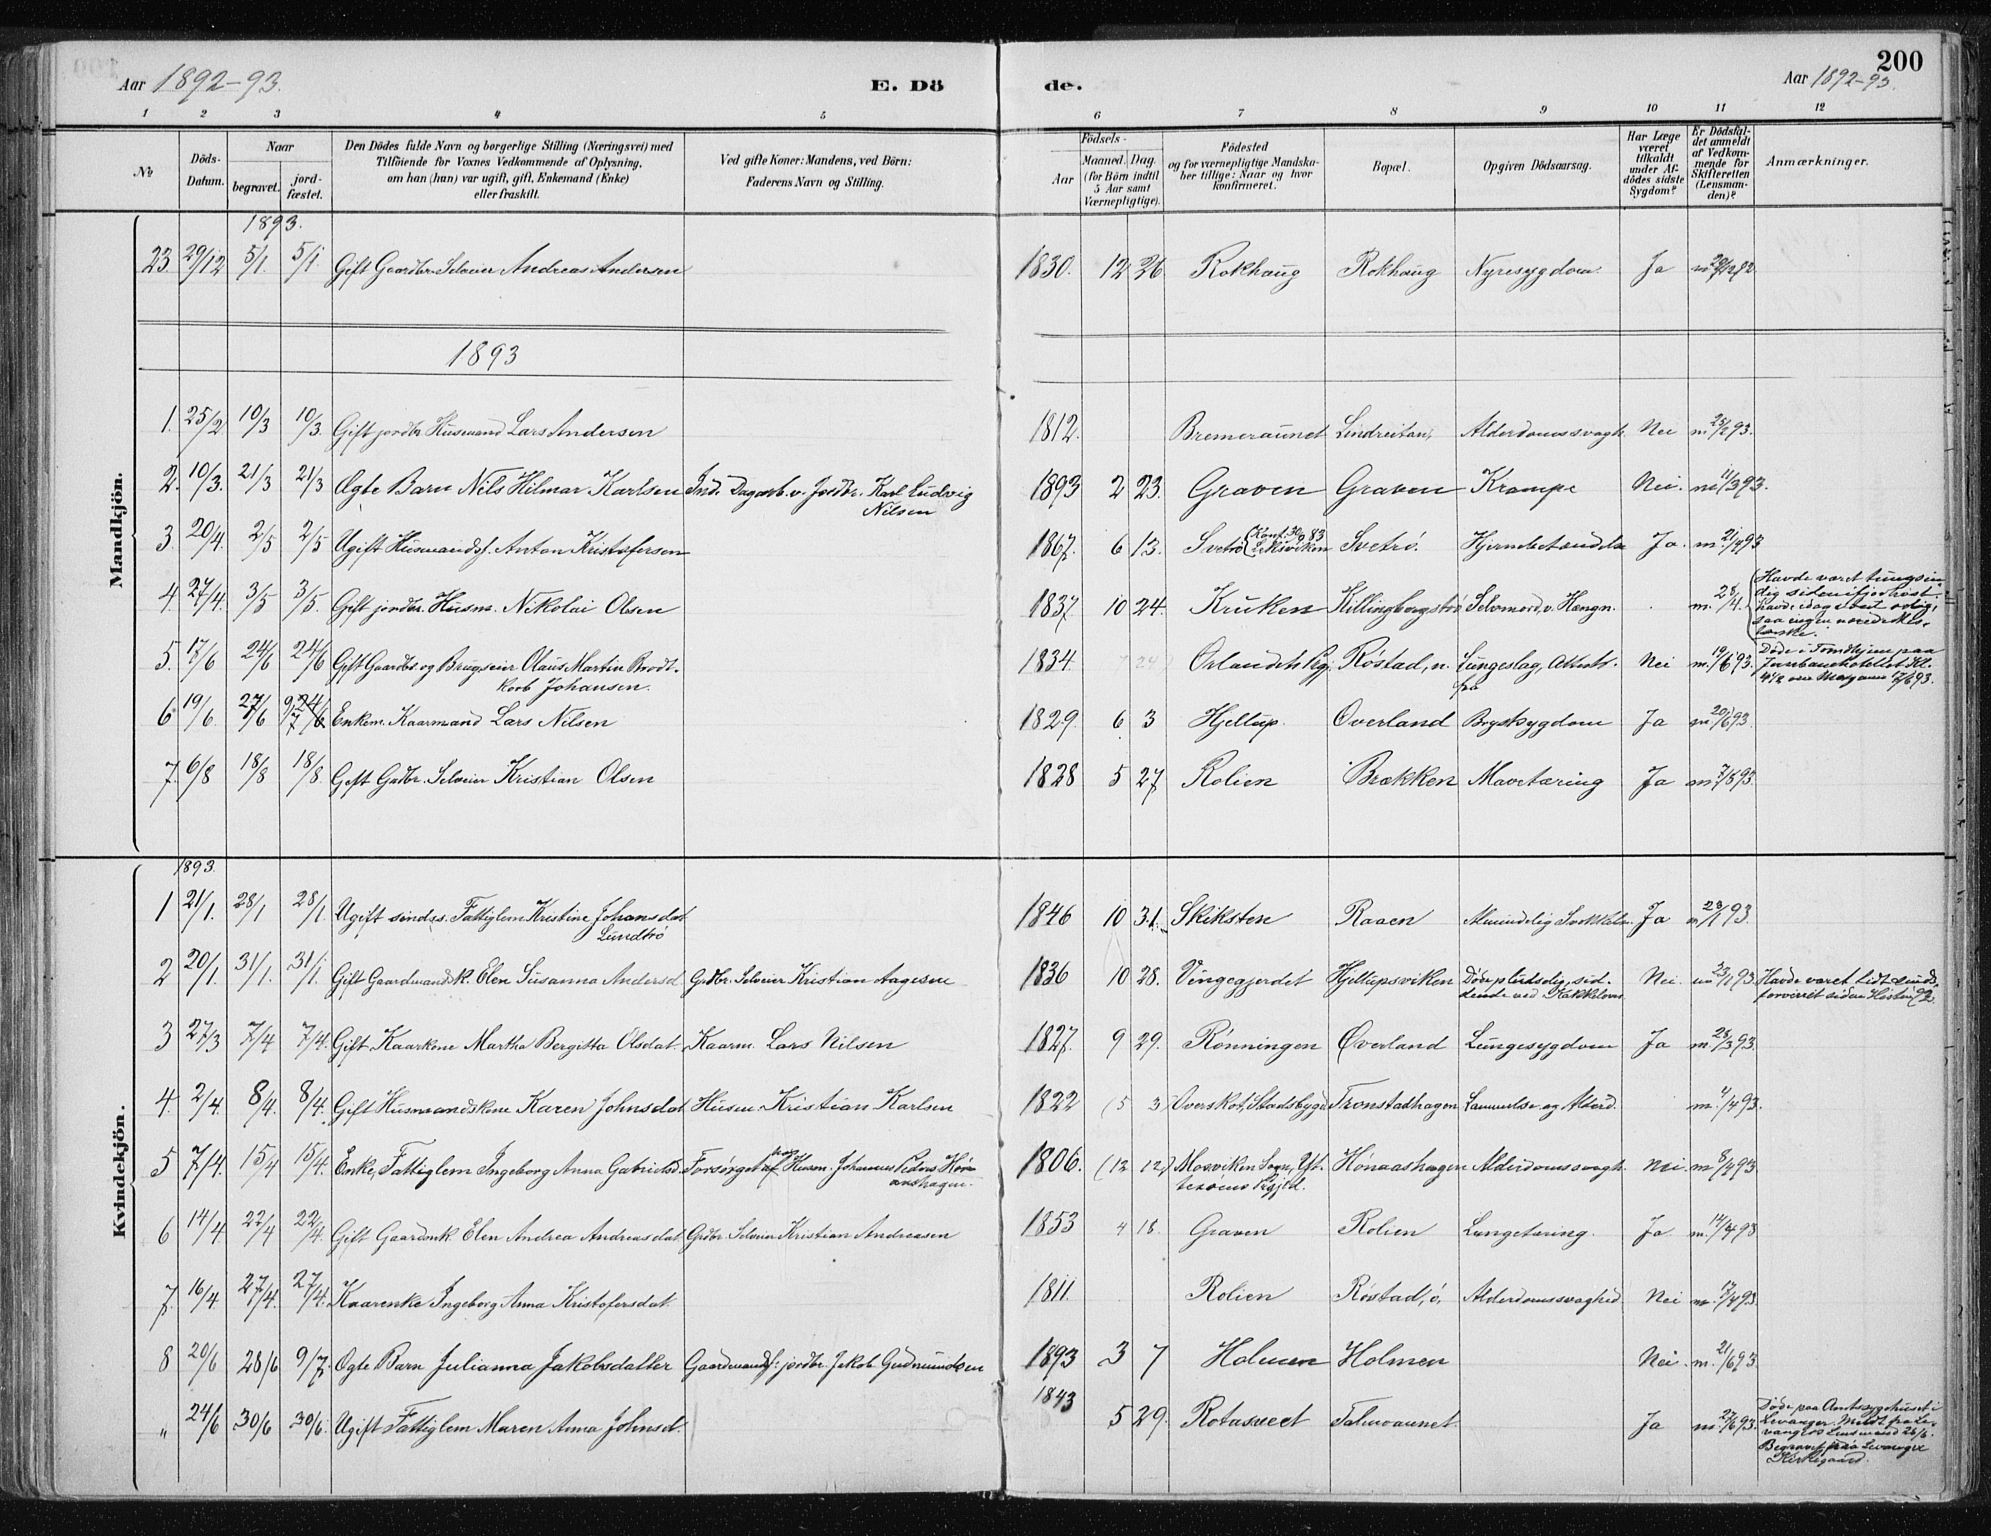 200
Aar 1892-93.
E. Dö
de.
Aar 1892-93.
1 2 3 4 5 6 7 8 9 10 11 12
No
Döds-Datum.
Naar
begravet.
jord-fæstet.
Den Dödes fulde Navn og borgerlige Stilling (Næringsvei) med
Tilföiende for Voxnes Vedkommende af Oplysning,
om han (hun) var ugift, gift, Enkemand (Enke)
eller fraskilt.
Ved gifte Koner: Mandens, ved Börn:
Faderens Navn og Stilling.
Födsels-
Aar
Maaned. Dag.
(for Börn indtil
5 Aar samt
Værnepligtige).
Födested
og for værnepligtige Mandska-
ber tillige: Naar og hvor
konfirmeret.
Bopæl.
Opgiven Dödsaarsag.
Har Læge
været
tilkaldt
under Af-
dödes sidste
Sygdom?
Er Dödsfal-
det anmeldt
af Vedkom-
mende for
Skifteretten
(Lensman-
den)?
Anmærkninger.
Mandkjön.
1893.
23. 29/12 5/1. 5/1. Gift Gaardbr. Selveier Andreas Andersen 1830. 12 26 Rokhaug Rokhaug Nyresygdom. Ja
1893
1. 25/2 10/3 10/3. Gift jordbr. Husmand Lars Andersen 1812. Bremeraunet Alderdomssvagh. Nei
2. 10/3. 21/3 21/3 Ægte Barn Nils Hilmar Karlsen Ind. Dagarb. v. Jordbr. Karl Ludvig Nilsen 1893 2 23. Graven Graven Krampe Nei. m. 11/3 93.
3. 20/4. 2/5 2/5 Ugift Husmandss. Anton Kristofersen 1867. 6 13. Svetrö (Konf. 30/9 83 Leksviken Svetrö. Hjernebetændelse Ja. m. 21/4 93
4. 27/4. 3/5 3/5. Gift jordbr. Husm. Nikolai Olsen 1837. 10 24. Kruken Killingbergströ Selvmord v. Hængn. m. 28/4.
5. 17/6 24/6 24/6 Gift Gaardbr. og Brugseier Olaus Martin Brodt-
korb Johansen. 1834. Örlandets Pgj. Röstad, n. Lungeslag, Nei m. 19/6 93.
6. 19/6. 27/6 Enkem. Kaarmand Lars Nilsen 1829. 6 3 Hjellup. Overland Brystsygdom Ja m. 20/6 93.
7. 6/8 18/8 18/8. Gift Gdbr. Selveier Kristian Olsen 1828 5 27 Rolien Brækken Mavetæring Ja m. 7/8 93.
Kvindekjön.
1893.
1 21/1. 28/1 28/1. Ugift sindss. Fattiglem Kristine Johansdat.
Lundtrö 1846 10 31. Skiksten Raaen Almindelig Svækkelse. Ja
2 20/1. 31/1. 31/1. Gift Gaardmandsk. Elen Susanna Andersd. Grdbr. Selveier Kristian Aagesen 1836 10 28. Vingegjerdet Hjellupsviken Döde pludselig, sid-
dende ved Kakklovn. Nei. m. 23/1 93. Havde været lidt sinds-
forvirret siden Hösten 92.
3 27/3 7/4 7/4. Gift Kaarkone Martha Bergitta Olsdat. Kaarm. Lars Nilsen 1827. 9 29. Rönningen Överland Lungesygdom Ja m. 28/3 93.
4. 2/4. 8/4. 8/4. Gift Husmandskone Karen Johnsdat. Husm. Kristian Karlsen 1822 (5 3) Overskot, Stadsbygd Tronstadhagen Lammelse og Alderd. m. 4/4 93.
5 7/4. 15/4 15/4. Enke, Fattiglem Ingeborg Anna Gabrielsd. Forsörget af Husm. Johannes 1806. (12 12) Mosviken Sogn, Yt-
teröens Pgjld. Hönaashagen Alderdomssvagh. Nei. m. 8/4 93.
6 14/4. 22/4 22/4. Gift Gaardmk. Elen Andrea Andreasdat. Grdbr. Selveier Kristian Andreasen 1853 4 18. Graven Rolien Lungetæring. Ja m. 14/4 93
7. 16/4. 27/4. 27/4. Kaarenke Ingeborg Anna Kristofersdat. 1811. Rolien Röstad, ö. Alderdomssvaghed Nei m. 17/4 93.
8 20/6 28/6 9/7. Ægte Barn Julianna Jakobsdatter Gaardmandss. jordbr. Jakob Gudmundsen 1893 3 7 Holmen Holmen Nei. m. 21/6 93.
" 24/6 30/6 30/6. Ugift Fattiglem Maren Anna Johnsd. 1843 5 29. Rotasveet Ja m. 27/6 93. Döde paa Amtssygehuset i
Levanger. Meldt fra Le-
vangers Lensmand 26/6.
Begravet paa Levanger
Kirkegaard.